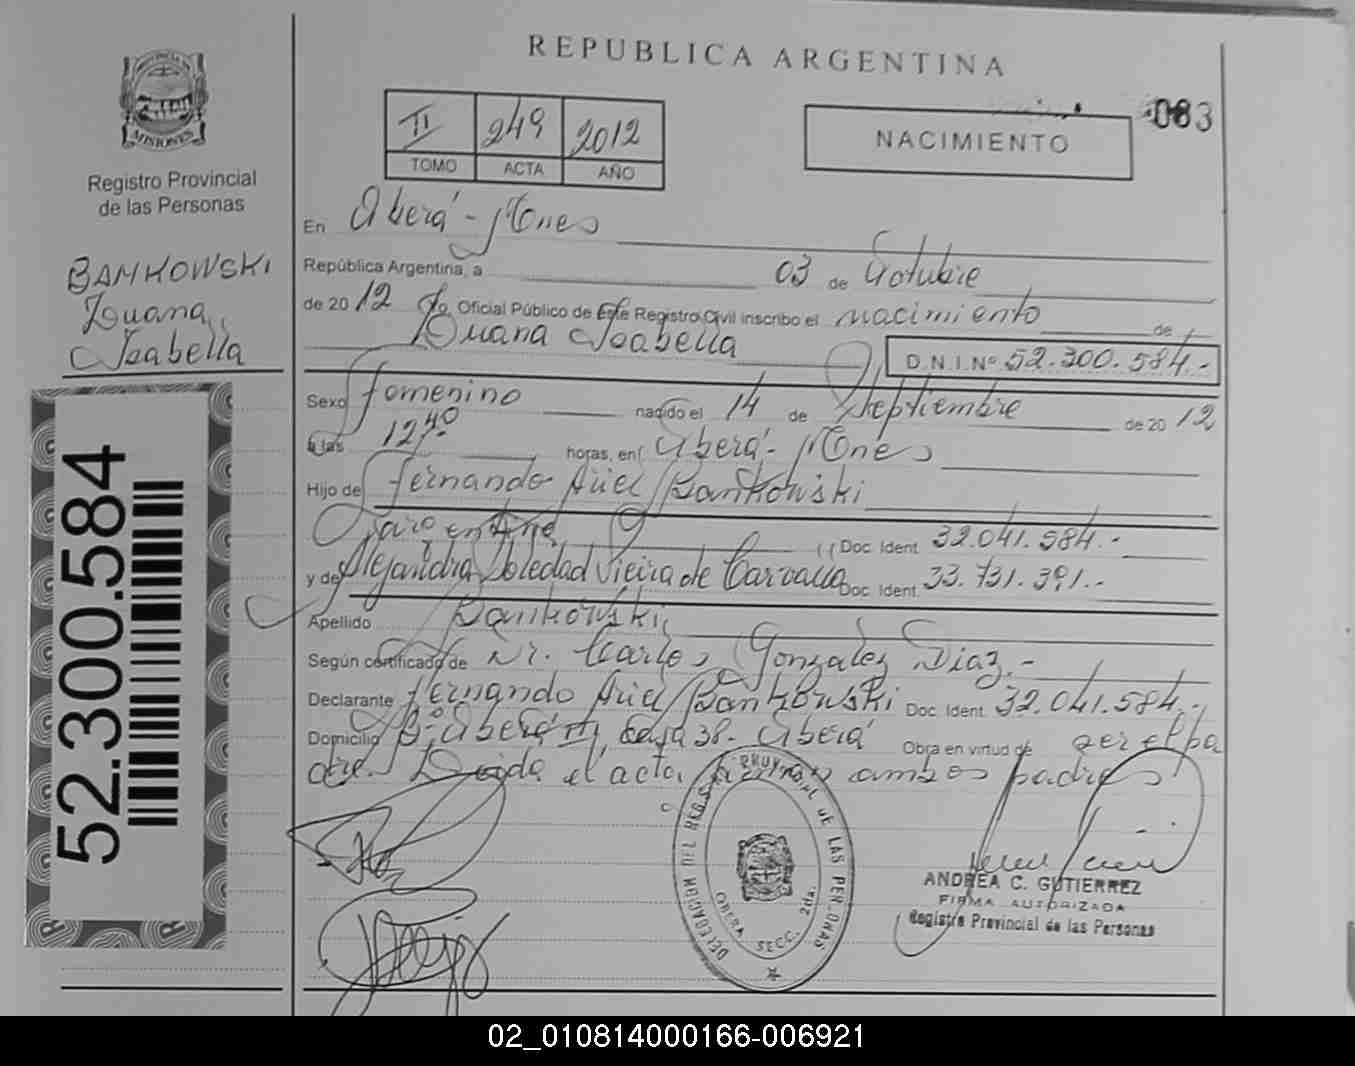 REPUBLICA ARGENTINA
MISIONES
Registro Provincial
de las Personas
II 249 2012
TOMO ACTA AÑO
NACIMIENTO
083
BANKOWSKI
Luana
Isabella
52.300.584
En Oberá - Mnes
República Argentina, a 03 de Octubre
de 20 12 Yo Oficial Público de Este Registro Civil inscribo el nacimiento de
Luana Isabella
D.N.I.Nº 52.300.584.-
Sexo femenino nacido el 14 de Septiembre de 20 12
a las 12,40 horas, en Oberá - Mnes
Hijo de Fernando Ariel Bankowski
Doc. Ident. 32.041.584.-
y de Alejandra Soledad Vieira de Carvalho Doc. Ident. 33.731.391.-
Apellido Bankowski
Según certificado de Dr. Carlos Gonzalez Diaz.-
Declarante Fernando Ariel Bankowski Doc. Ident. 32.041.584.-
Domicilio Bº Oberá III casa 38. Oberá Obra en virtud de ser el pa
dre. Leida el acta, firman ambos padres
DELEGACION DEL REG. PROVINCIAL DE LAS PERSONAS
OBERA SECC. 2da.
ANDREA C. GUTIERREZ
FIRMA AUTORIZADA
Registro Provincial de las Personas
02_010814000166-006921